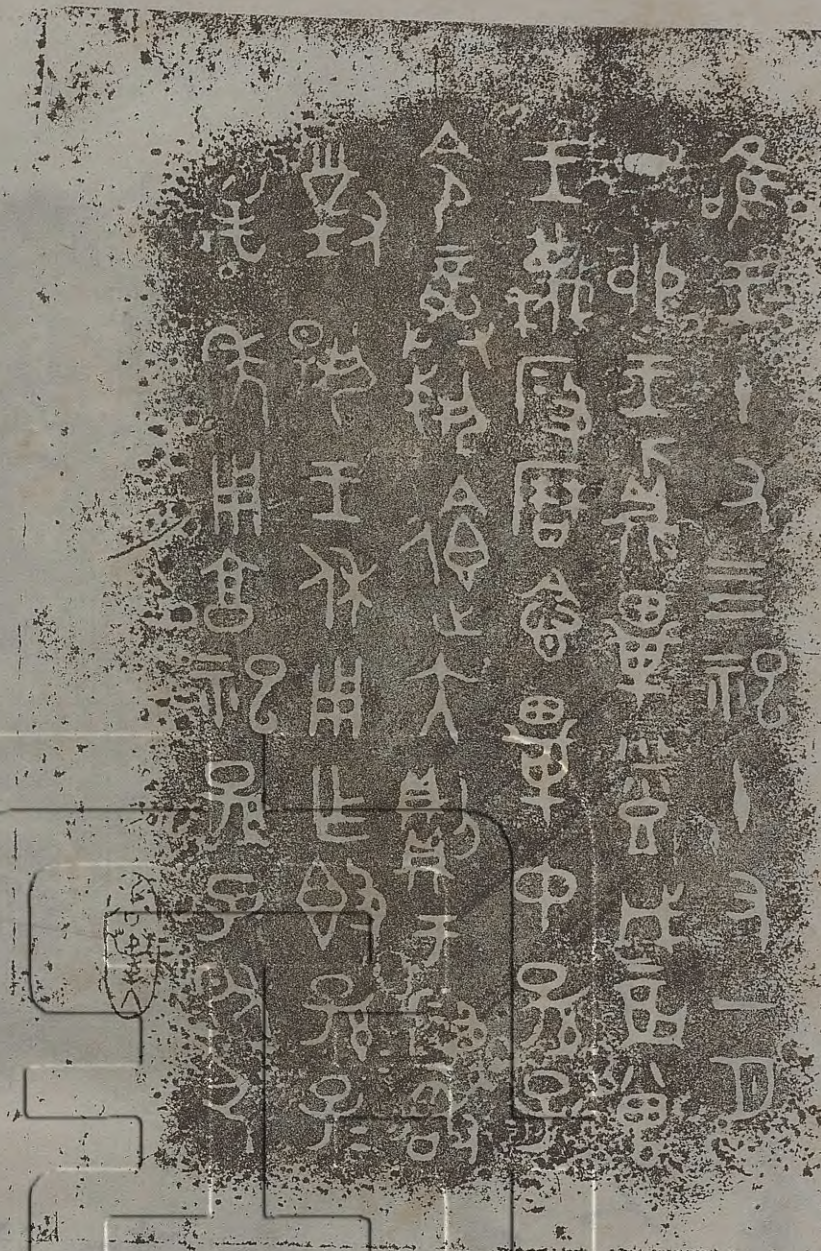 唯王十又四祀十又一月
丁卯王鼒畢烝戊辰曾
王蔑段曆念畢中孫子
令龏大則于段敢
對揚王休用乍𣪘孫孫子子
萬年用亯祀孫子